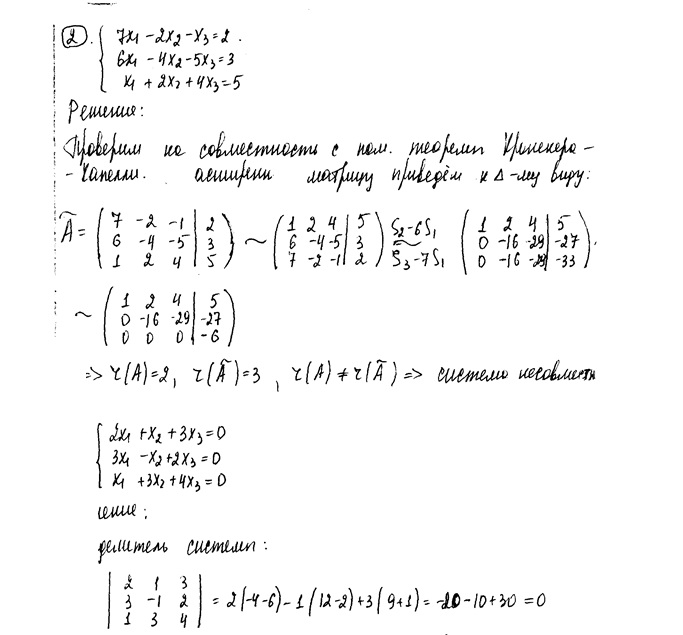 2. { 7x₁ - 2x₂ - x₃ = 2.
6x₁ - 4x₂ - 5x₃ = 3
x₁ + 2x₂ + 4x₃ = 5
Решение:
Проверим на совместность с пом. теоремы Кронекера -
- Капелли. асширенн матрицу приведём к Δ-му виду:
Ã = ( 7 -2 -1 | 2 ) ~ ( 1 2 4 | 5 ) S₂-6S₁ ( 1 2 4 | 5 )
( 6 -4 -5 | 3 ) ( 6 -4 -5 | 3 ) ~ ( 0 -16 -29 | -27 ).
( 1 2 4 | 5 ) ( 7 -2 -1 | 2 ) S₃-7S₁ ( 0 -16 -29 | -33 )
~ ( 1 2 4 | 5 )
( 0 -16 -29 | -27 )
( 0 0 0 | -6 )
=> r(A)=2, r(Ã)=3, r(A) ≠ r(Ã) => система несовместн
{ 2x₁ + x₂ + 3x₃ = 0
3x₁ - x₂ + 2x₃ = 0
x₁ + 3x₂ + 4x₃ = 0
ение:
делитель системы:
| 2 1 3 |
| 3 -1 2 | = 2(-4-6) - 1(12-2) + 3(9+1) = -20 - 10 + 30 = 0
| 1 3 4 |